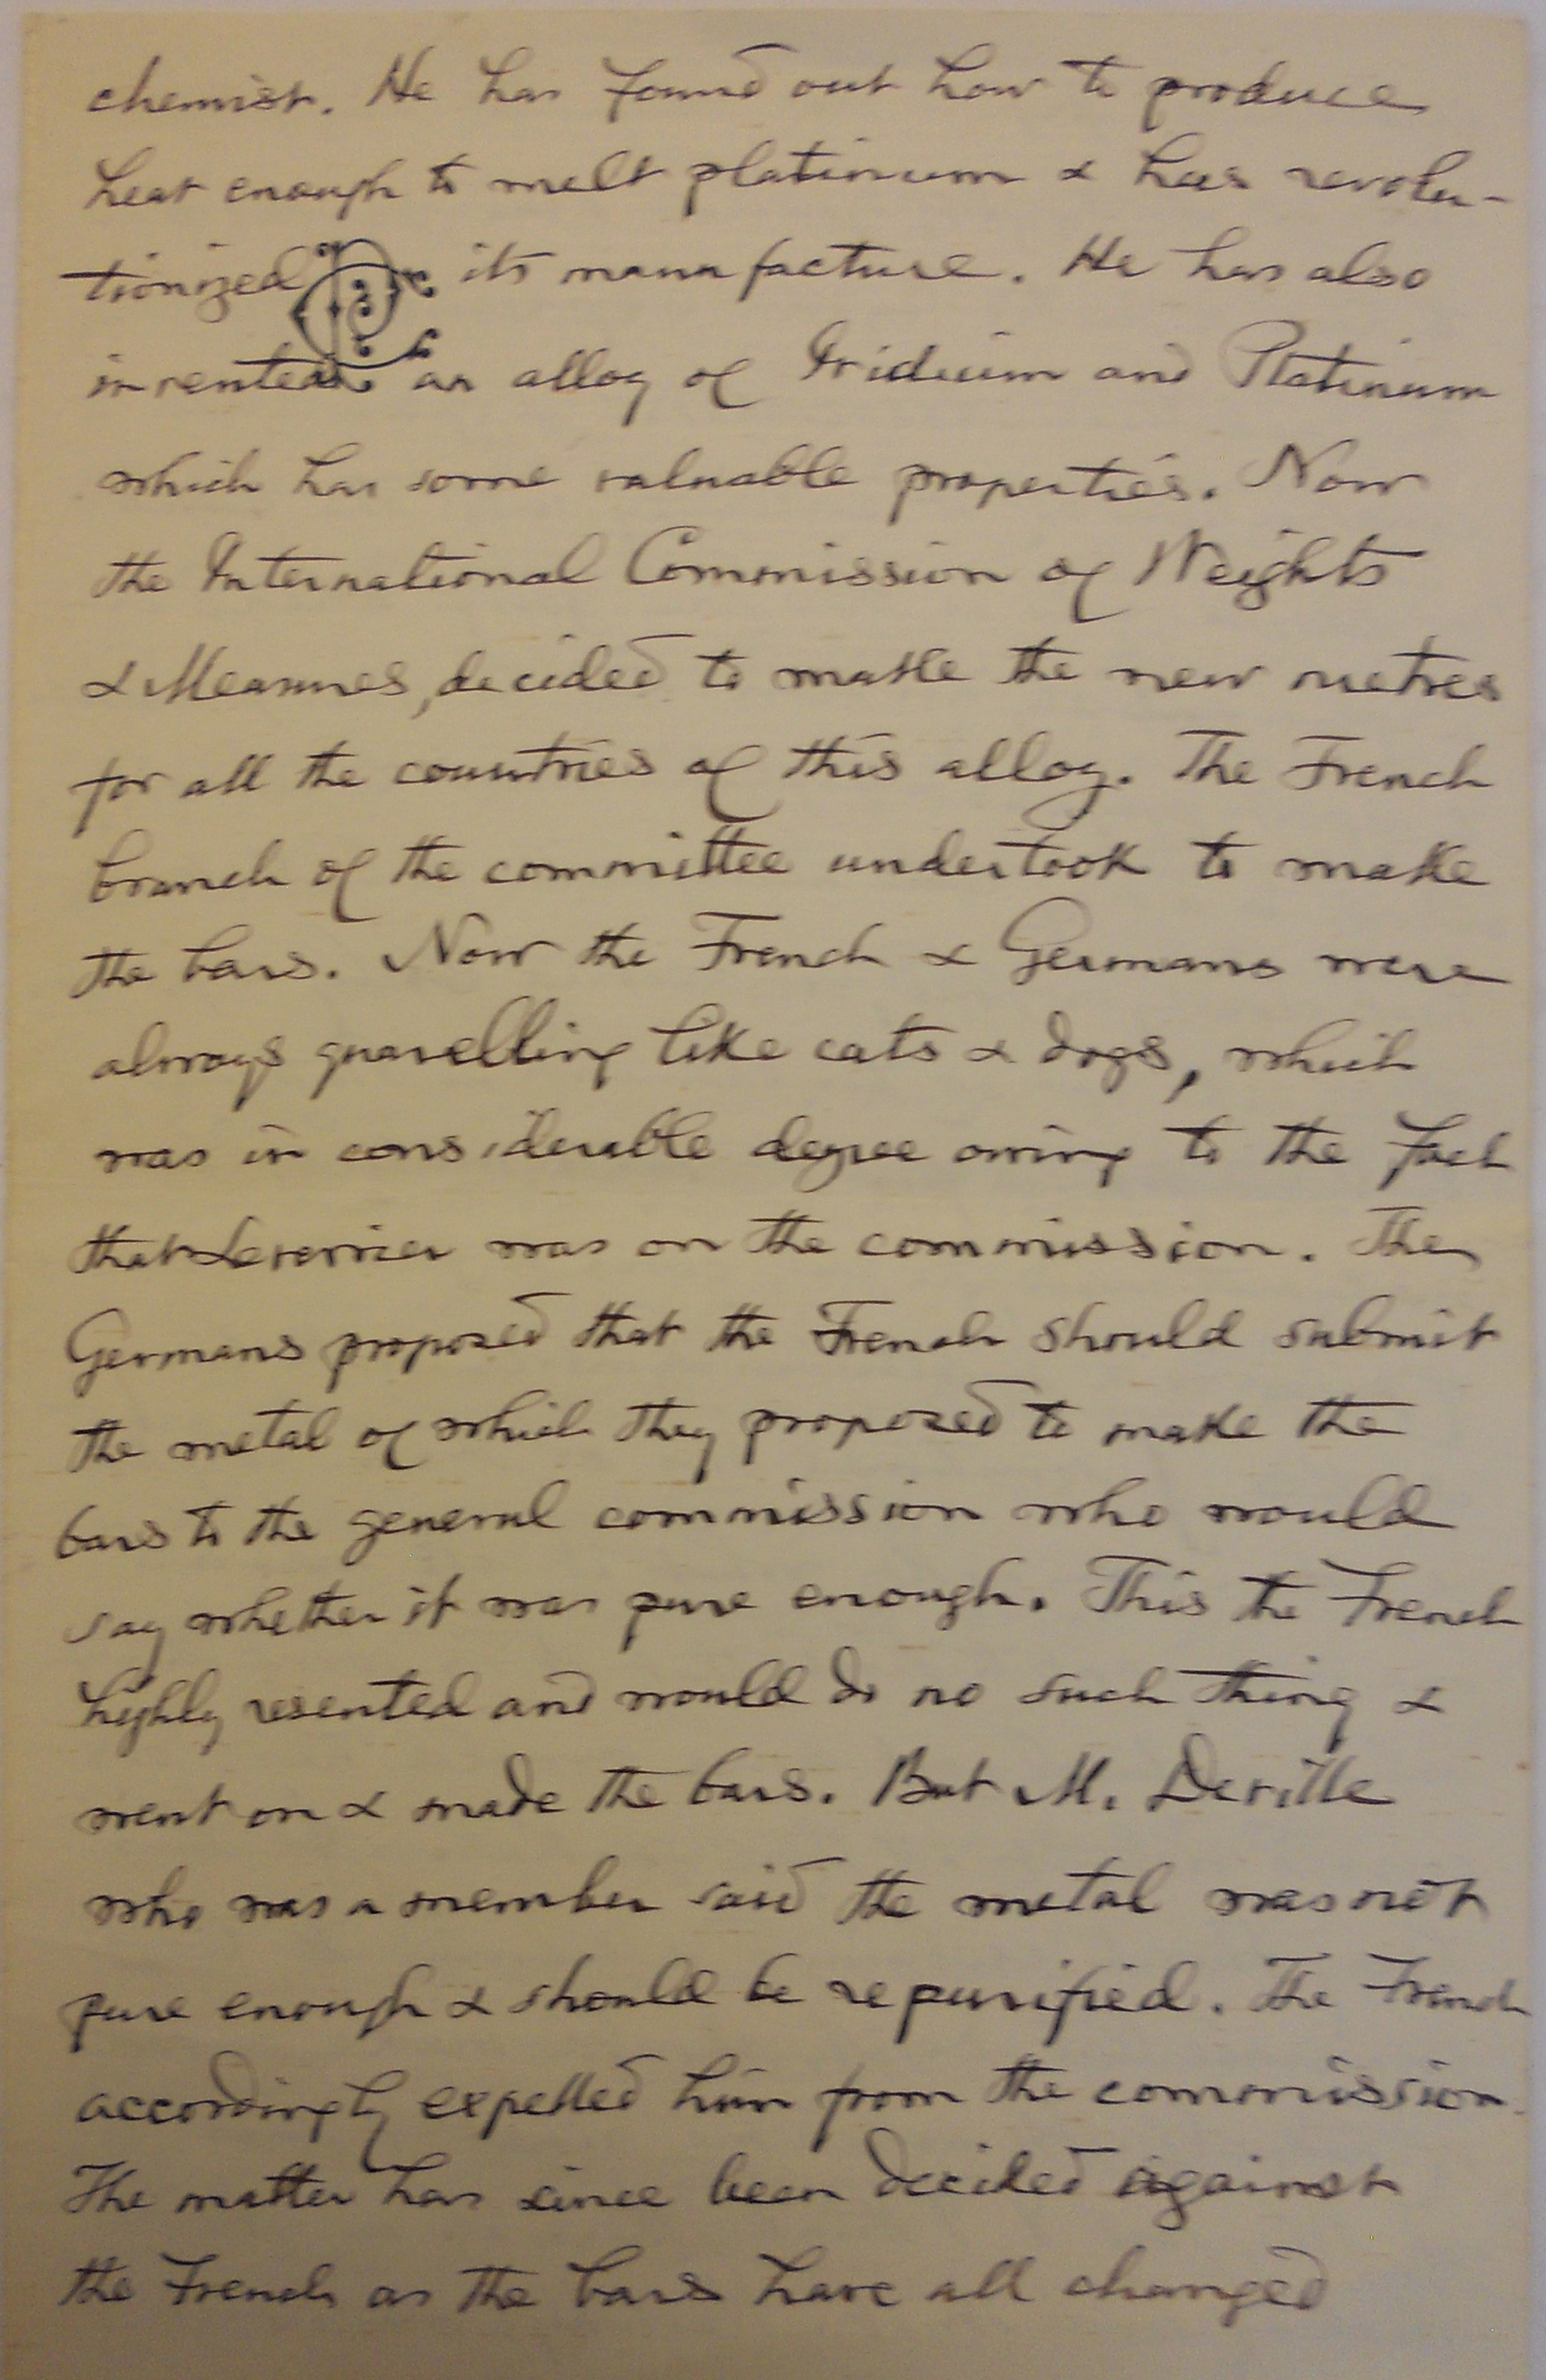 chemist. He has found out how to produce
heat enough to melt platinum & has revolu-
tionized its manufacture. He has also
invented an alloy of Iridium and Platinum
which has some valuable properties. Now
the International Commission of Weights
& Measures, decided to make the new metres
for all the countries of this alloy. The French
branch of the committee undertook to make
the bars. Now the French & Germans were
always quarelling like cats & dogs, which
was in considerable degree owing to the fact
that Leverrier was on the commission. The
Germans proposed that the French should submit
the metal of which they proposed to make the
bars to the general commission who would
say whether it was pure enough. This the French
highly resented and would do no such thing &
went on & made the bars. But M. Deville
who was a member said the metal was not
pure enough & should be repurified. The French
accordingly expelled him from the commission.
The matter has since been decided against
the French as the bars have all changed